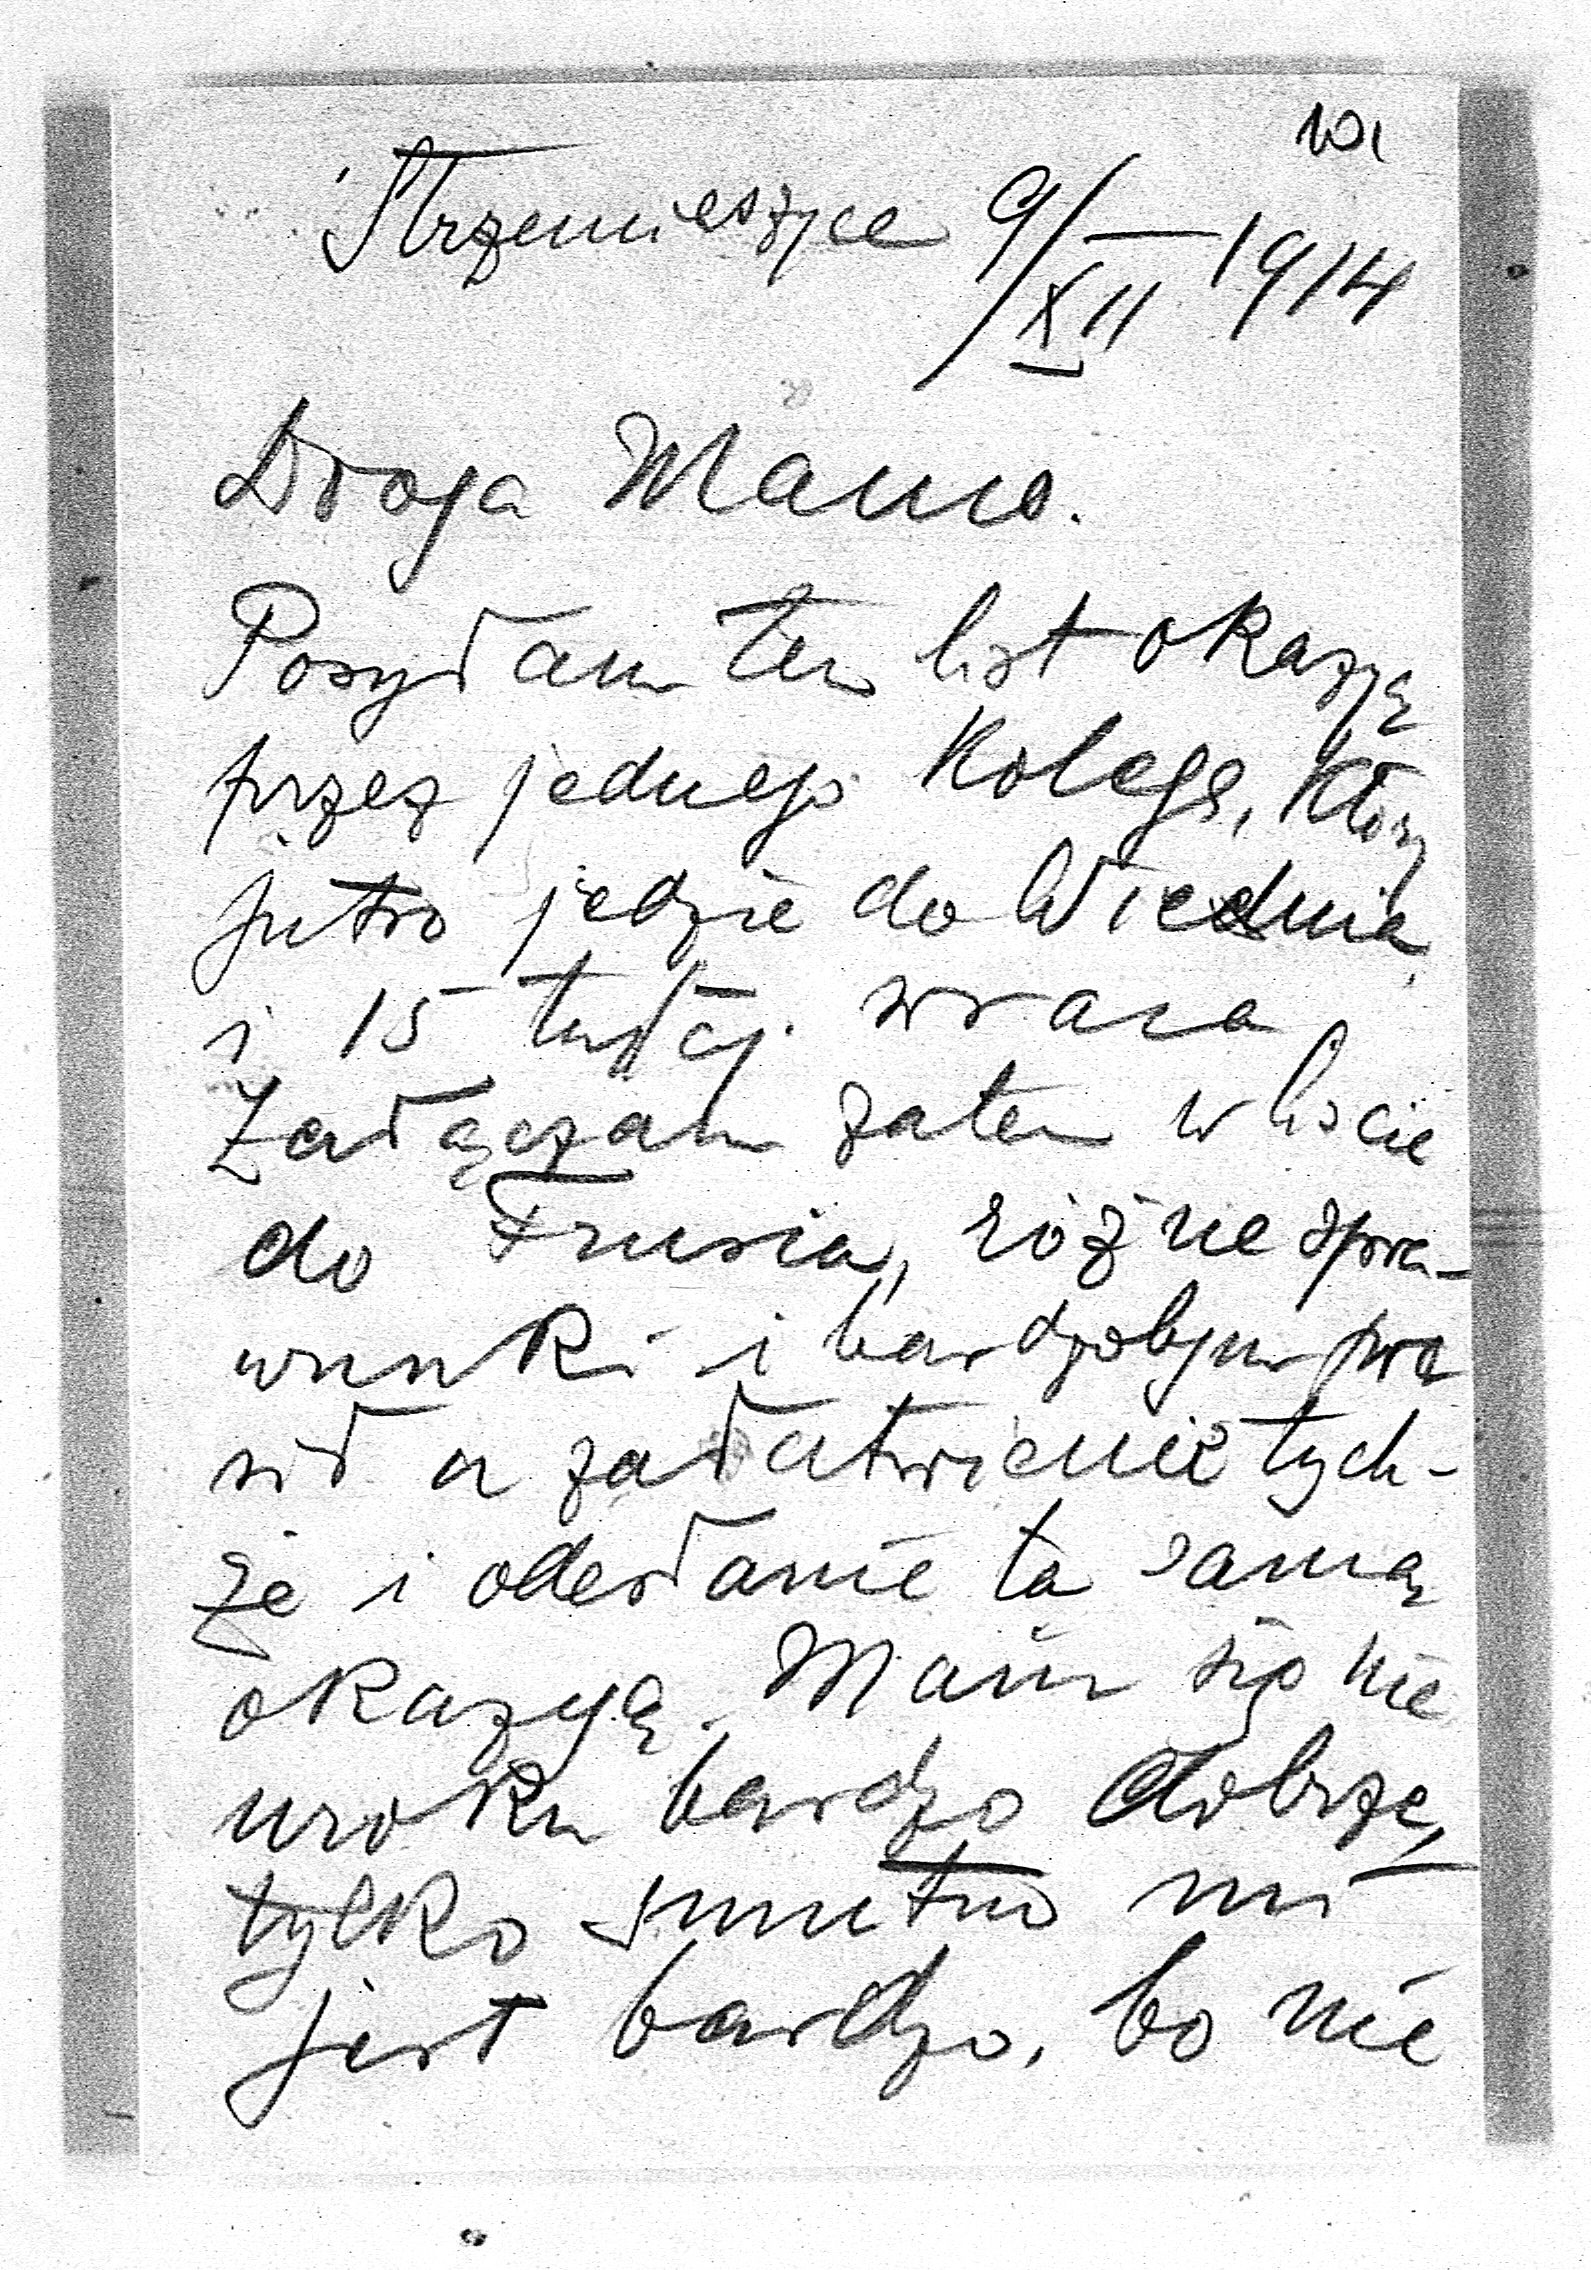 101
Strzemieszyce 9/XII 1914
Droga Mamo.
Posyłam ten list okazyą
przez jednego Kolegę, który
jutro jedzie do Wiednia,
i 15 tutaj wraca.
Załączam zatem w liście
do Frusia, różne spra-
wunki i bardzobym pro
sił o załatwienie tych-
że i odesłanie tą samą
okazyą. Mam się nie
uroku bardzo dobrze,
tylko smutno mi
jest bardzo, bo nie